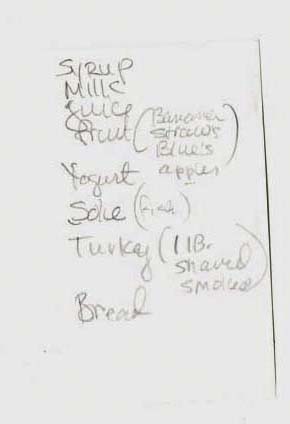 Syrup
Milk
Juice
Fruit (Bananas
Straws
Blue's)
Yogurt apples
Sole (fish)
Turkey (1 lB.
shaved
smoked)
Bread